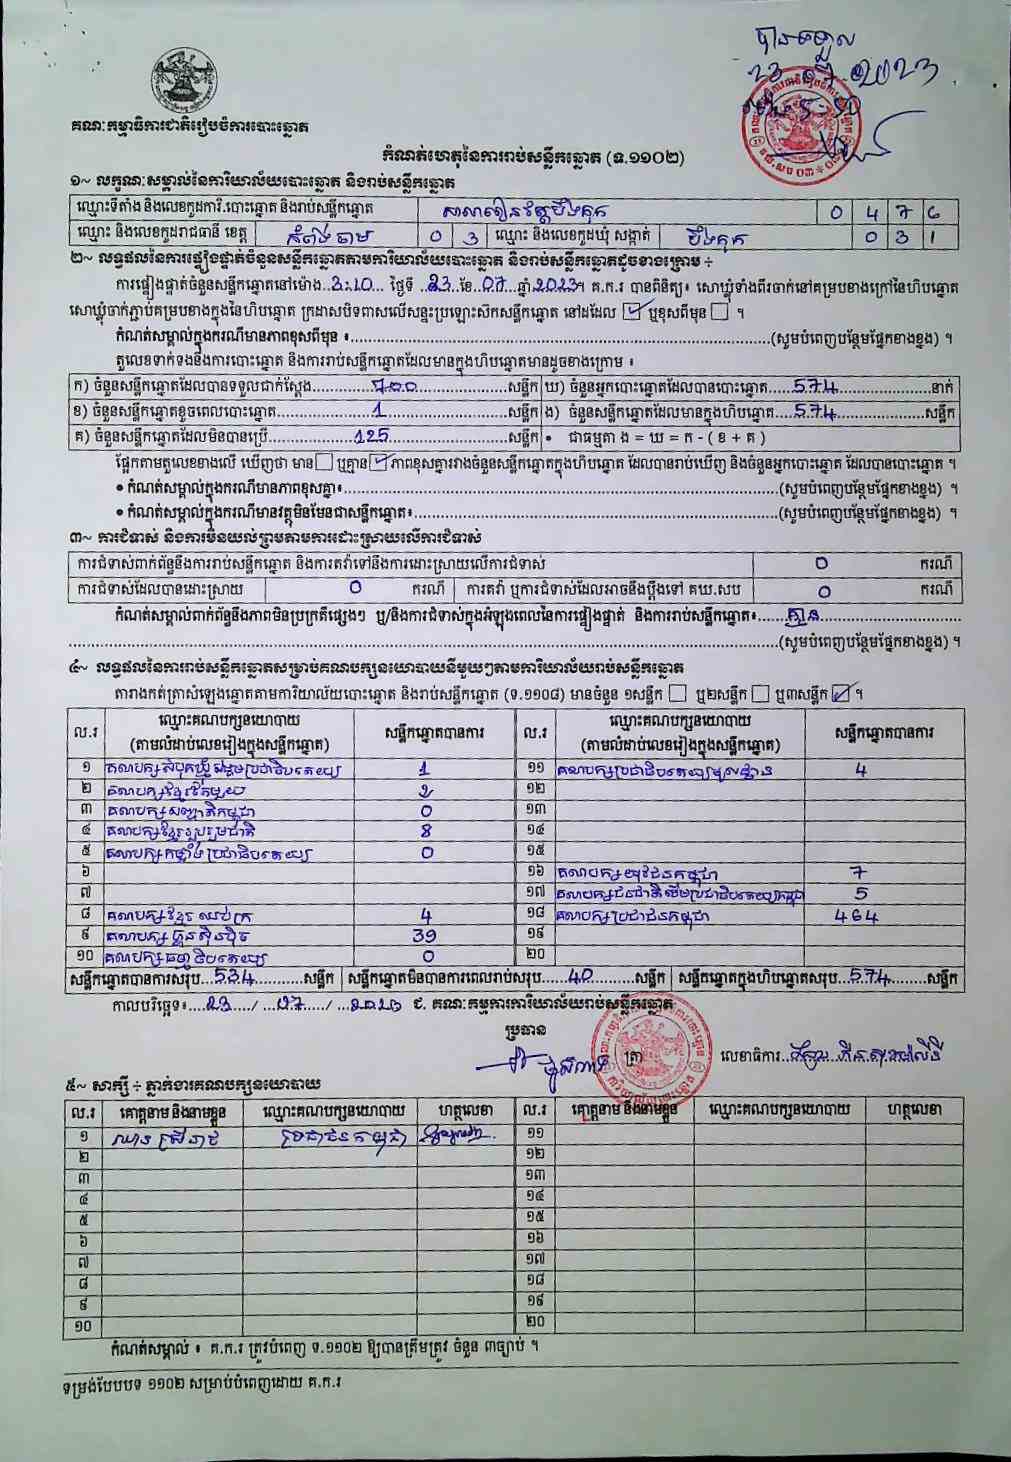 បានទទួល
23 2023
គណៈកម្មាធិការជាតិរៀបចំការបោះឆ្នោត
កំណត់ហេតុនៃការរាប់សន្លឹកឆ្នោត (ទ.១១០២)
១~ លក្ខណៈសម្គាល់នៃការិយាល័យបោះឆ្នោត និងរាប់សន្លឹកឆ្នោត
ឈ្មោះទីតាំង និងលេខកូដការិ.បោះឆ្នោត និងរាប់សន្លឹកឆ្នោត សាលារៀនវត្តបឹងកុក 0 4 7 6
ឈ្មោះ និងលេខកូដរាជធានី ខេត្ត កំពង់ចាម 0 3 ឈ្មោះ និងលេខកូដឃុំ សង្កាត់ បឹងកុក 0 3 1
២~ លទ្ធផលនៃការផ្ទៀងផ្ទាត់ចំនួនសន្លឹកឆ្នោតតាមការិយាល័យបោះឆ្នោត និងរាប់សន្លឹកឆ្នោតដូចខាងក្រោម ÷
ការផ្ទៀងផ្ទាត់ចំនួនសន្លឹកឆ្នោតនៅម៉ោង..3:10... ថ្ងៃទី ..23..ខែ.07...ឆ្នាំ2023។ គ.ក.រ បានពិនិត្យ៖ សោឃ្លុំទាំងពីរចាក់នៅគម្របខាងក្រៅនៃហិបឆ្នោត
សោឃ្លុំចាក់ភ្ជាប់គម្របខាងក្នុងនៃហិបឆ្នោត ក្រដាសបិទពាសលើសន្ទះប្រឡោះស៊កសន្លឹកឆ្នោត នៅដដែល ☑ ឬខុសពីមុន ☐ ។
កំណត់សម្គាល់ក្នុងករណីមានភាពខុសពីមុន ៖...(សូមបំពេញបន្ថែមផ្នែកខាងខ្នង) ។
តួលេខទាក់ទងនឹងការបោះឆ្នោត និងការរាប់សន្លឹកឆ្នោតដែលមានក្នុងហិបឆ្នោតមានដូចខាងក្រោម ៖
ក) ចំនួនសន្លឹកឆ្នោតដែលបានទទួលជាក់ស្តែង...700...សន្លឹក ឃ) ចំនួនអ្នកបោះឆ្នោតដែលបានបោះឆ្នោត...574...នាក់
ខ) ចំនួនសន្លឹកឆ្នោតខូចពេលបោះឆ្នោត...1...សន្លឹក ង) ចំនួនសន្លឹកឆ្នោតដែលមានក្នុងហិបឆ្នោត...574...សន្លឹក
គ) ចំនួនសន្លឹកឆ្នោតដែលមិនបានប្រើ...125...សន្លឹក • ជាធម្មតា ង = ឃ = ក - ( ខ + គ )
ផ្អែកតាមតួលេខខាងលើ ឃើញថា មាន ☐ ឬគ្មាន ☑ ភាពខុសគ្នារវាងចំនួនសន្លឹកឆ្នោតក្នុងហិបឆ្នោត ដែលបានរាប់ឃើញ និងចំនួនអ្នកបោះឆ្នោត ដែលបានបោះឆ្នោត ។
• កំណត់សម្គាល់ក្នុងករណីមានភាពខុសគ្នា៖...(សូមបំពេញបន្ថែមផ្នែកខាងខ្នង) ។
• កំណត់សម្គាល់ក្នុងករណីមានវត្ថុមិនមែនជាសន្លឹកឆ្នោត៖...(សូមបំពេញបន្ថែមផ្នែកខាងខ្នង) ។
៣~ ការជំទាស់ និងការមិនយល់ព្រមតាមការដោះស្រាយលើការជំទាស់
ការជំទាស់ពាក់ព័ន្ធនឹងការរាប់សន្លឹកឆ្នោត និងការតវ៉ាទៅនឹងការដោះស្រាយលើការជំទាស់ 0 ករណី
ការជំទាស់ដែលបានដោះស្រាយ 0 ករណី ការតវ៉ា ឬការជំទាស់ដែលអាចនឹងប្តឹងទៅ គឃ.សប 0 ករណី
កំណត់សម្គាល់ពាក់ព័ន្ធនឹងភាពមិនប្រក្រតីផ្សេងៗ ឬ/និងការជំទាស់ក្នុងអំឡុងពេលនៃការផ្ទៀងផ្ទាត់ និងការរាប់សន្លឹកឆ្នោត៖...គ្មាន...
...(សូមបំពេញបន្ថែមផ្នែកខាងខ្នង) ។
៤~ លទ្ធផលនៃការរាប់សន្លឹកឆ្នោតសម្រាប់គណបក្សនយោបាយនីមួយៗតាមការិយាល័យរាប់សន្លឹកឆ្នោត
តារាងកត់ត្រាសំឡេងឆ្នោតតាមការិយាល័យបោះឆ្នោត និងរាប់សន្លឹកឆ្នោត (ទ.១១០៨) មានចំនួន ១សន្លឹក ☐ ឬ២សន្លឹក ☐ ឬ៣សន្លឹក ☑ ។
ល.រ ឈ្មោះគណបក្សនយោបាយ (តាមលំដាប់លេខរៀងក្នុងសន្លឹកឆ្នោត) សន្លឹកឆ្នោតបានការ ល.រ ឈ្មោះគណបក្សនយោបាយ (តាមលំដាប់លេខរៀងក្នុងសន្លឹកឆ្នោត) សន្លឹកឆ្នោតបានការ
១ គណបក្សសំបុកឃ្មុំសង្គមប្រជាធិបតេយ្យ 1 ១១ គណបក្សប្រជាធិបតេយ្យមូលដ្ឋាន 4
២ គណបក្សខ្មែរតែមួយ 2 ១២
៣ គណបក្សសញ្ជាតិកម្ពុជា 0 ១៣
៤ គណបក្សខ្មែររួបរួមជាតិ 8 ១៤
៥ គណបក្សកម្លាំងប្រជាធិបតេយ្យ 0 ១៥
៦ ១៦ គណបក្សយុវជនកម្ពុជា 7
៧ ១៧ គណបក្សជនជាតិដើមប្រជាធិបតេយ្យកម្ពុជា 5
៨ គណបក្សខ្មែរឈប់ក្រ 4 ១៨ គណបក្សប្រជាជនកម្ពុជា 464
៩ គណបក្សហ្វ៊ុនស៊ិនប៉ិច 39 ១៩
១០ គណបក្សធម្មាធិបតេយ្យ 0 ២០
សន្លឹកឆ្នោតបានការសរុប...534...សន្លឹក សន្លឹកឆ្នោតមិនបានការពេលរាប់សរុប...40...សន្លឹក សន្លឹកឆ្នោតក្នុងហិបឆ្នោតសរុប...574...សន្លឹក
កាលបរិច្ឆេទ៖...23.../...07.../...2023 ជ. គណៈកម្មការការិយាល័យរាប់សន្លឹកឆ្នោត
ប្រធាន
ត្រា លេខាធិការ
៥~ សាក្សី ÷ ភ្នាក់ងារគណបក្សនយោបាយ
ល.រ គោត្តនាម និងនាមខ្លួន ឈ្មោះគណបក្សនយោបាយ ហត្ថលេខា ល.រ គោត្តនាម និងនាមខ្លួន ឈ្មោះគណបក្សនយោបាយ ហត្ថលេខា
១ ប្រជាជនកម្ពុជា ១១
២ ១២
៣ ១៣
៤ ១៤
៥ ១៥
៦ ១៦
៧ ១៧
៨ ១៨
៩ ១៩
១០ ២០
កំណត់សម្គាល់ ៖ គ.ក.រ ត្រូវបំពេញ ទ.១១០២ ឱ្យបានត្រឹមត្រូវ ចំនួន ៣ច្បាប់ ។
ទម្រង់បែបបទ ១១០២ សម្រាប់បំពេញដោយ គ.ក.រ